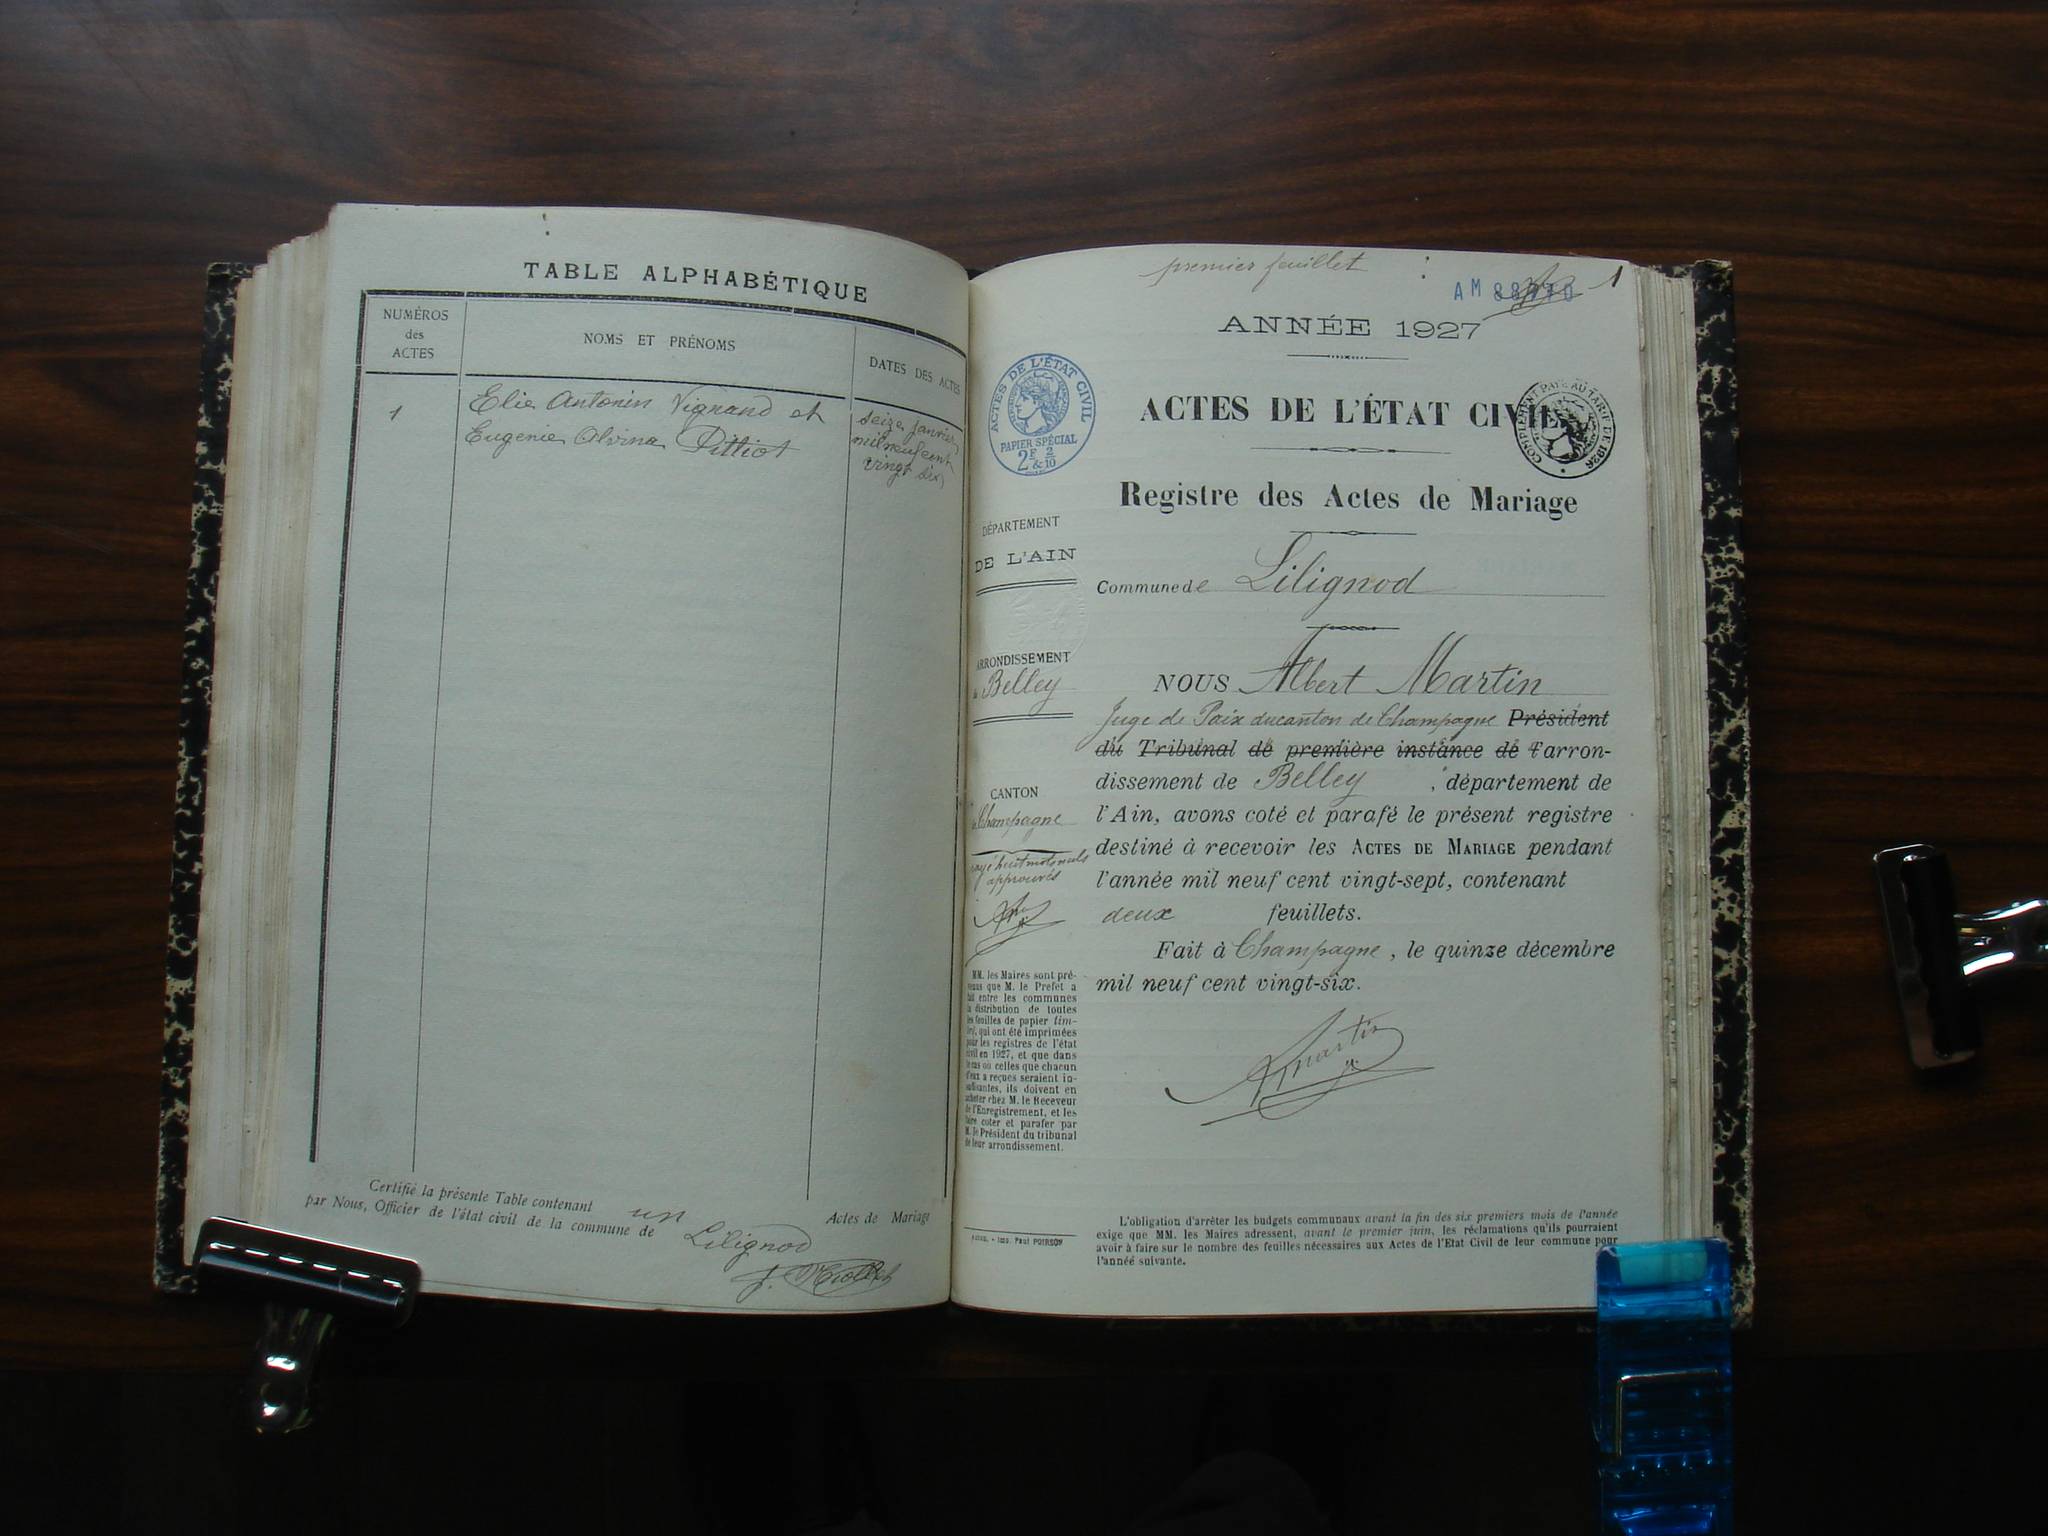 TABLE ALPHABÉTIQUE
NUMÉROS
des
ACTES
NOMS ET PRÉNOMS
DATES DES ACTES
1
Elie Antonin Vignand et
Eugenie Olvina Pittiot
seize janvier
mil neuf cent
vingt six
Certifié la présente Table contenant un Actes de Mariage
par Nous, Officier de l'état civil de la commune de Lilignod
premier feuillet
1
AM
ANNÉE 1927
ACTES DE L'ÉTAT CIVIL
PAPIER SPÉCIAL
2F 2/10
& 10
ACTES DE L'ÉTAT CIVIL
COMPLÉMENT PAYÉ AU TARIF DE 1926
Registre des Actes de Mariage
DÉPARTEMENT
DE L'AIN
Commune de Lilignod
ARRONDISSEMENT
de Belley
CANTON
de Champagne
rayé huit mots nuls
approuvés
NOUS Albert Martin
Juge de Paix du canton de Champagne Président
du Tribunal de première instance de l'arron-
dissement de Belley, département de
l'Ain, avons coté et parafé le présent registre
destiné à recevoir les ACTES DE MARIAGE pendant
l'année mil neuf cent vingt-sept, contenant
deux feuillets.
Fait à Champagne, le quinze décembre
mil neuf cent vingt-six.
AMartin
MM. les Maires sont pré-
venus que M. le Préfet a
fait entre les communes
la distribution de toutes
les feuilles de papier tim-
bré, qui ont été imprimées
pour les registres de l'état
civil en 1927, et que dans
le cas où celles que chacun
d'eux a reçues seraient in-
suffisantes, ils doivent en
acheter chez M. le Receveur
de l'Enregistrement, et les
faire coter et parafer par
M. le Président du tribunal
de leur arrondissement.
Imp. Paul POIRSON
L'obligation d'arrêter les budgets communaux avant la fin des six premiers mois de l'année
exige que MM. les Maires adressent, avant le premier juin, les réclamations qu'ils pourraient
avoir à faire sur le nombre des feuilles nécessaires aux Actes de l'Etat Civil de leur commune pour
l'année suivante.